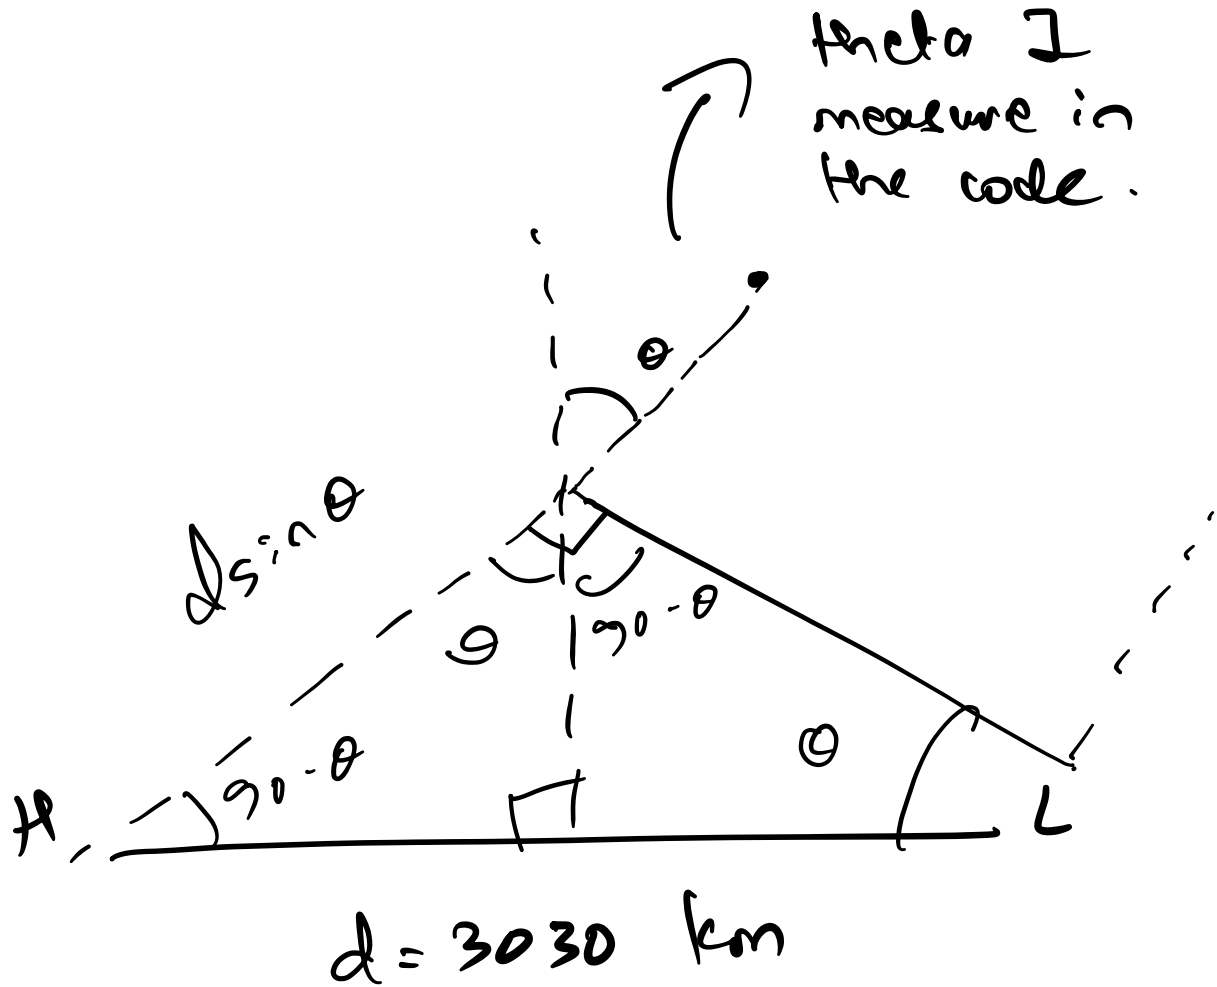 theta I
measure in
the code.
θ
dsinθ
θ
90-θ
θ
90-θ
H
L
d = 3030 km